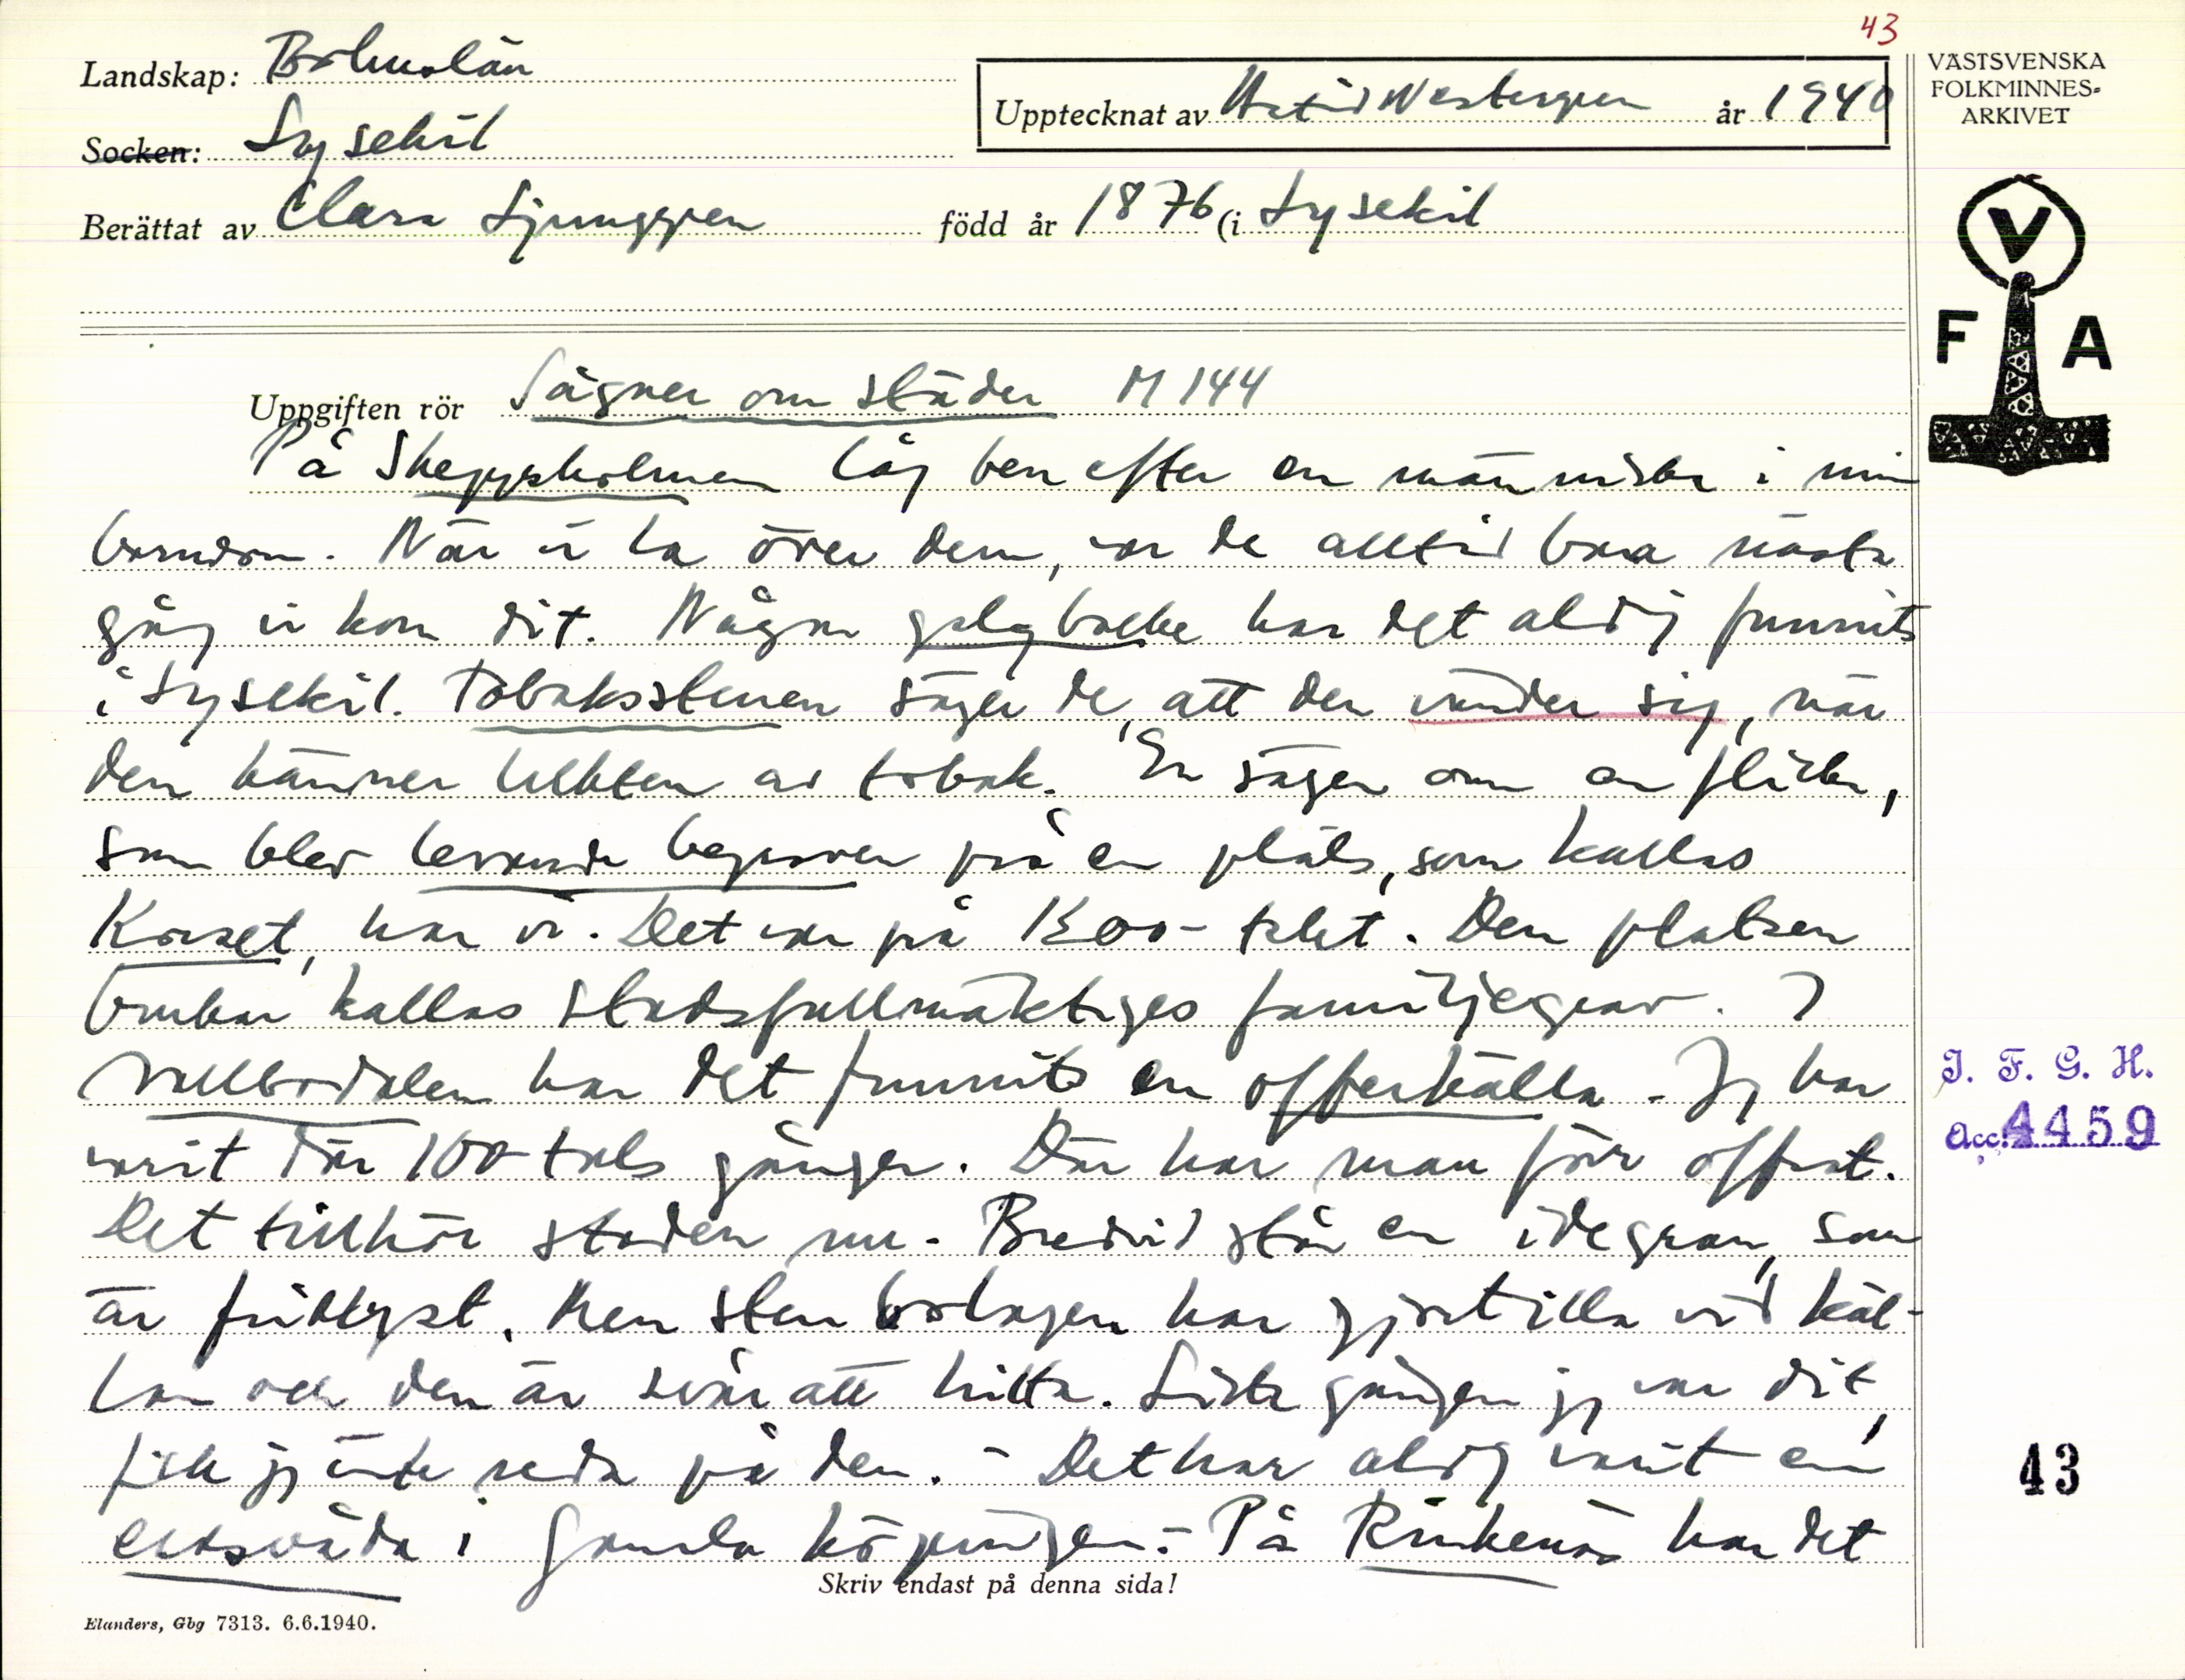 43
Landskap: Bohuslän
Upptecknat av Astrid Westergren år 1940
VÄSTSVENSKA
FOLKMINNES-
ARKIVET
Socken: Lysekil
Berättat av Clara Ljunggren född år 1876 (i Lysekil
V
F A
Uppgiften rör Sägner om städer M 144
På Skeppsholmen låg ben efter en människa i min
barndom. När vi la över dem, var de alltid bara nästa
gång vi kom dit. Någon galgbacke har det aldrig funnits
i Lysekil. Tobaksstenen säger de, att den vänder sig, när
den känner lukten av tobak. En sägen om en flicka,
som blev levande begraven på en plats, som kallas
Korset, har vi. Det var på 1500-talet. Den platsen
brukar kallas stadsfullmäktiges familjegrav. I
Vallbodalen har det funnits en offerkälla. Jag har
varit där 100-tals gånger. Där har man förr offrat.
Det tillhör staden nu. Bredvid står en idegran, som
är fridlyst. Men stenbolagen har gjort illa vid käl-
lan och den är svår att hitta. Sista gången jag var dit,
fick jag inte reda på den. - Det har aldrig varit en
eldsvåda i Gamla köpingen. - På Rinkenäs har det
Skriv endast på denna sida!
Elanders, Gbg 7313. 6.6.1940.
I. F. G. H.
Acc. 4459
43